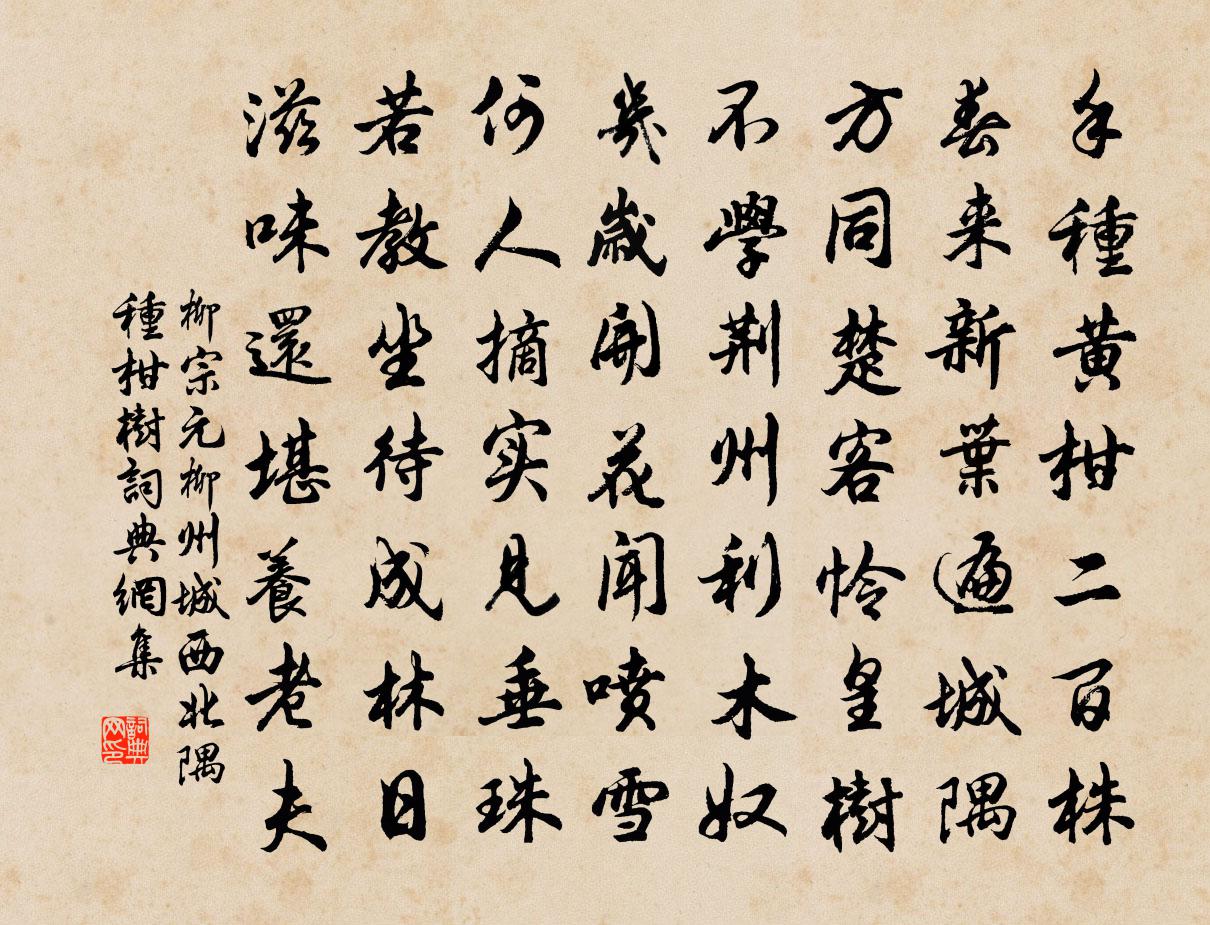 手種黄柑二百株
春来新葉遍城隅
方同楚客怜皇樹
不學荆州利木奴
幾歲開花聞噴雪
何人摘实見垂珠
若教坐待成林日
滋味還堪養老夫
柳宗元柳州城西北隅
種柑樹詞典網集
詞典網印